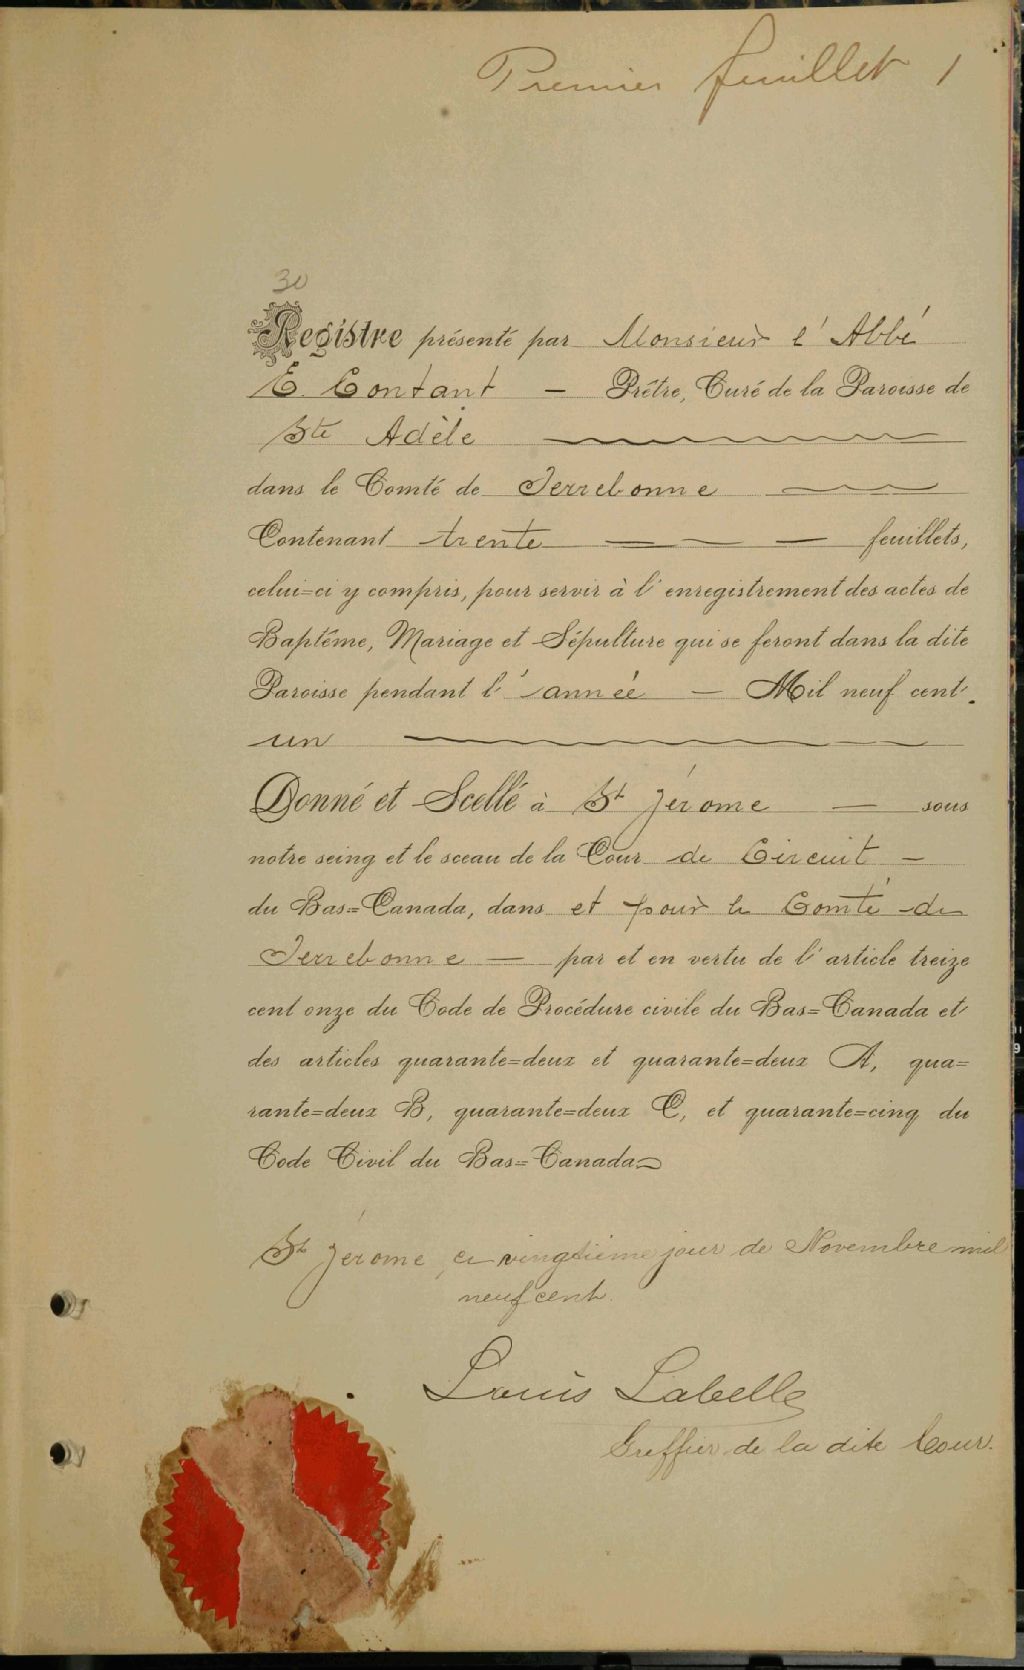 Premier feuillet 1
30
Registre présenté par Monsieur l'Abbé
E. Contant — Prêtre, Curé de la Paroisse de
Ste Adèle
dans le Comté de Terrebonne
Contenant trente — — — feuillets,
celui=ci y compris, pour servir à l'enregistrement des actes de
Baptême, Mariage et Sépulture qui se feront dans la dite
Paroisse pendant l'année — Mil neuf cent
un
Donné et Scellé à St Jérome — sous
notre seing et le sceau de la Cour de Circuit —
du Bas=Canada, dans et pour le Comté de
Terrebonne — par et en vertu de l'article treize
cent onze du Code de Procédure civile du Bas=Canada et
des articles quarante=deux et quarante=deux A, qua=
rante=deux B, quarante=deux C, et quarante=cinq du
Code Civil du Bas=Canada
St Jérome, ce vingtième jour de Novembre mil
neuf cent.
Louis Labelle
Greffier de la dite Cour.